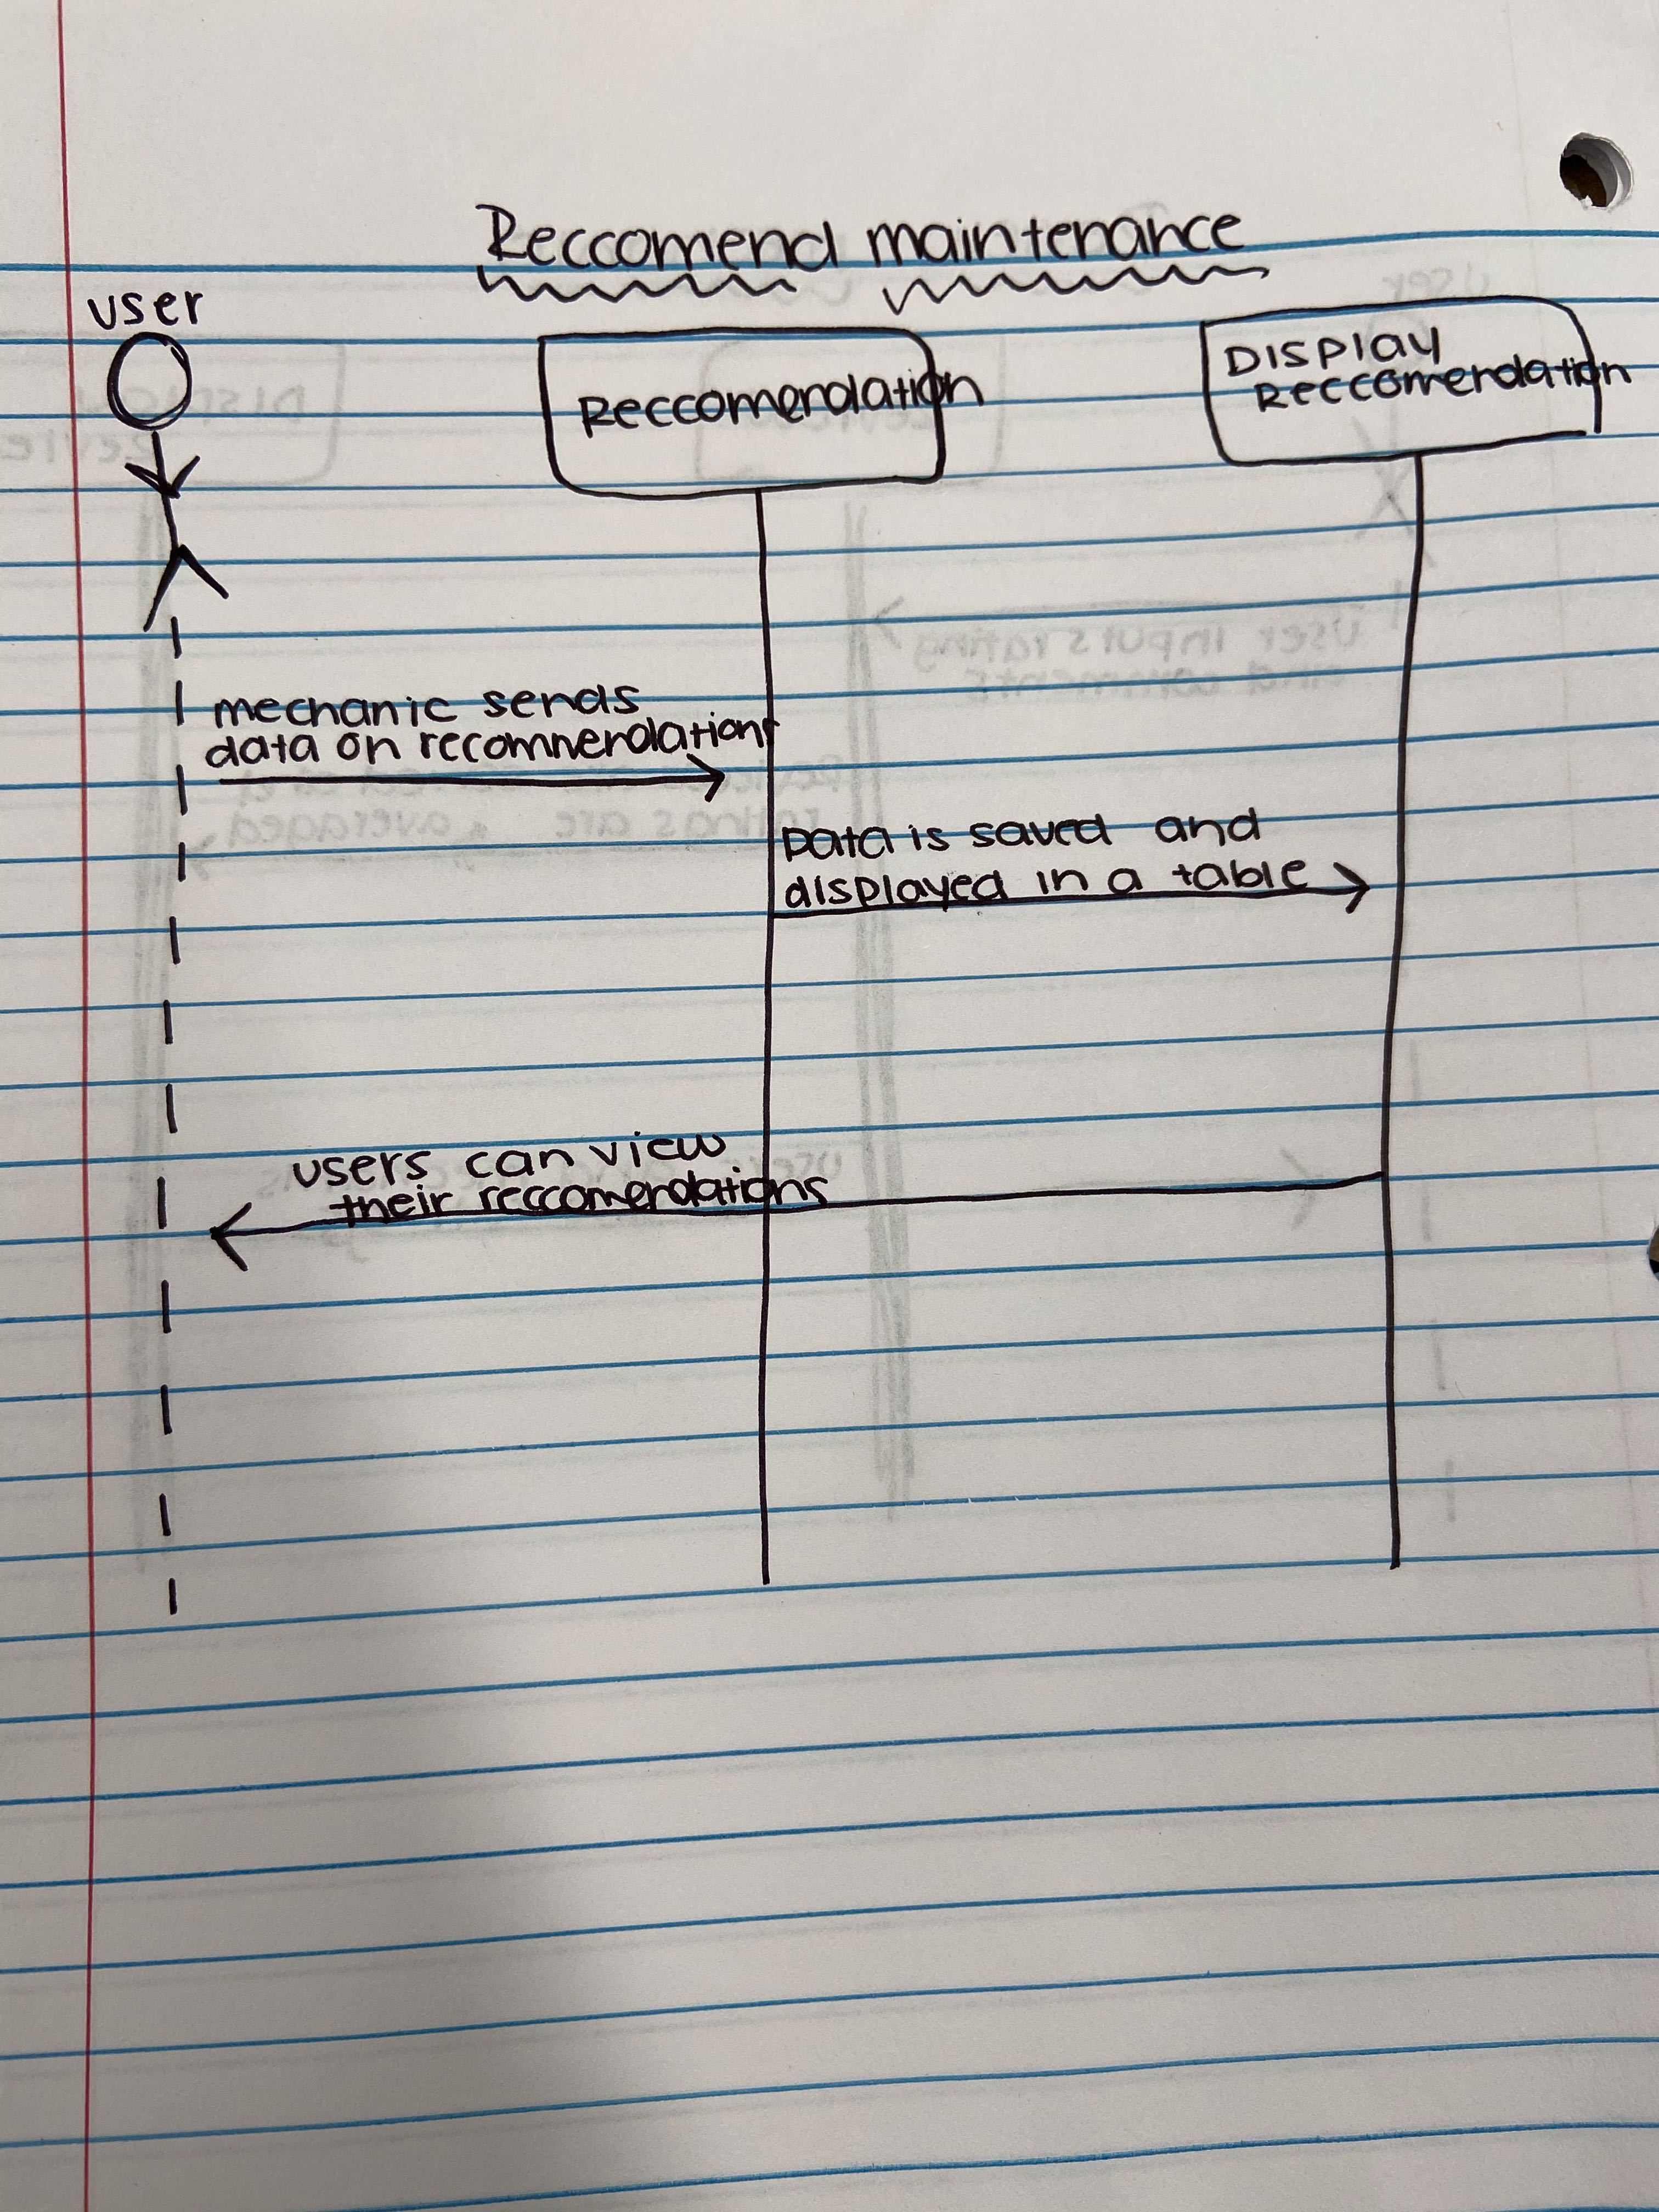 Reccomend maintenance
user
Reccomendation
DISPLAY
Reccomendation
mechanic sends
data on recomnendations
Data is saved and
displayed in a table
users can view
their reccomendations